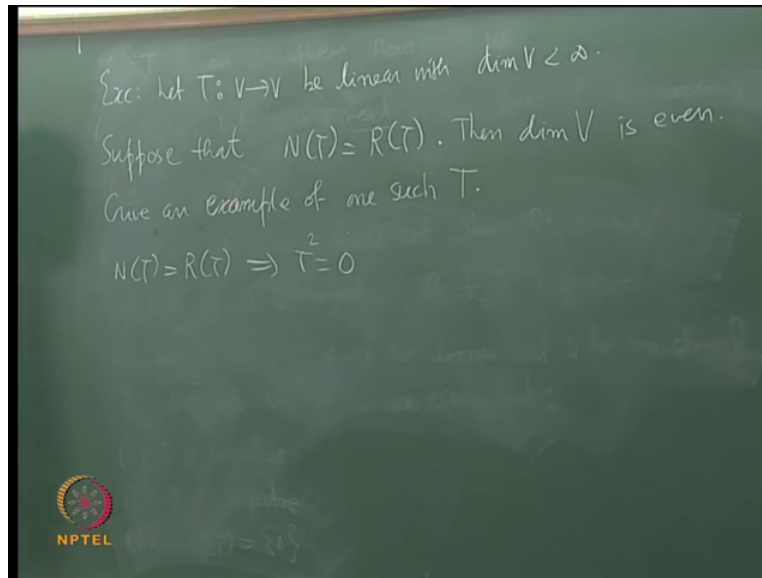 Exc: Let T: V→V be linear with dim V < ∞.
Suppose that N(T) = R(T). Then dim V is even.
Give an example of one such T.
N(T) = R(T) ⇒ T² = 0
NPTEL